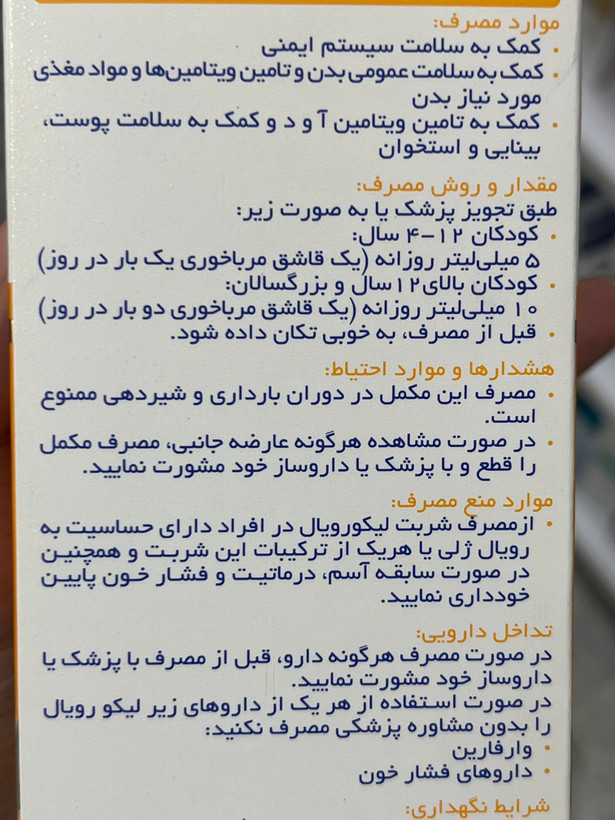 موارد مصرف:
• کمک به سلامت سیستم ایمنی
• کمک به سلامت عمومی بدن و تامین ویتامین‌ها و مواد مغذی
مورد نیاز بدن
• کمک به تامین ویتامین آ و د و کمک به سلامت پوست،
بینایی و استخوان
مقدار و روش مصرف:
طبق تجویز پزشک یا به صورت زیر:
• کودکان ۱۲-۴ سال:
۵ میلی‌لیتر روزانه (یک قاشق مرباخوری یک بار در روز)
• کودکان بالای۱۲سال و بزرگسالان:
۱۰ میلی‌لیتر روزانه (یک قاشق مرباخوری دو بار در روز)
• قبل از مصرف، به خوبی تکان داده شود.
هشدارها و موارد احتیاط:
• مصرف این مکمل در دوران بارداری و شیردهی ممنوع
است.
• در صورت مشاهده هرگونه عارضه جانبی، مصرف مکمل
را قطع و با پزشک یا داروساز خود مشورت نمایید.
موارد منع مصرف:
• ازمصرف شربت لیکورویال در افراد دارای حساسیت به
رویال ژلی یا هریک از ترکیبات این شربت و همچنین
در صورت سابقه آسم، درماتیت و فشار خون پایین
خودداری نمایید.
تداخل دارویی:
در صورت مصرف هرگونه دارو، قبل از مصرف با پزشک یا
داروساز خود مشورت نمایید.
در صورت استفاده از هر یک از داروهای زیر لیکو رویال
را بدون مشاوره پزشکی مصرف نکنید:
• وارفارین
• داروهای فشار خون
شرایط نگهداری: